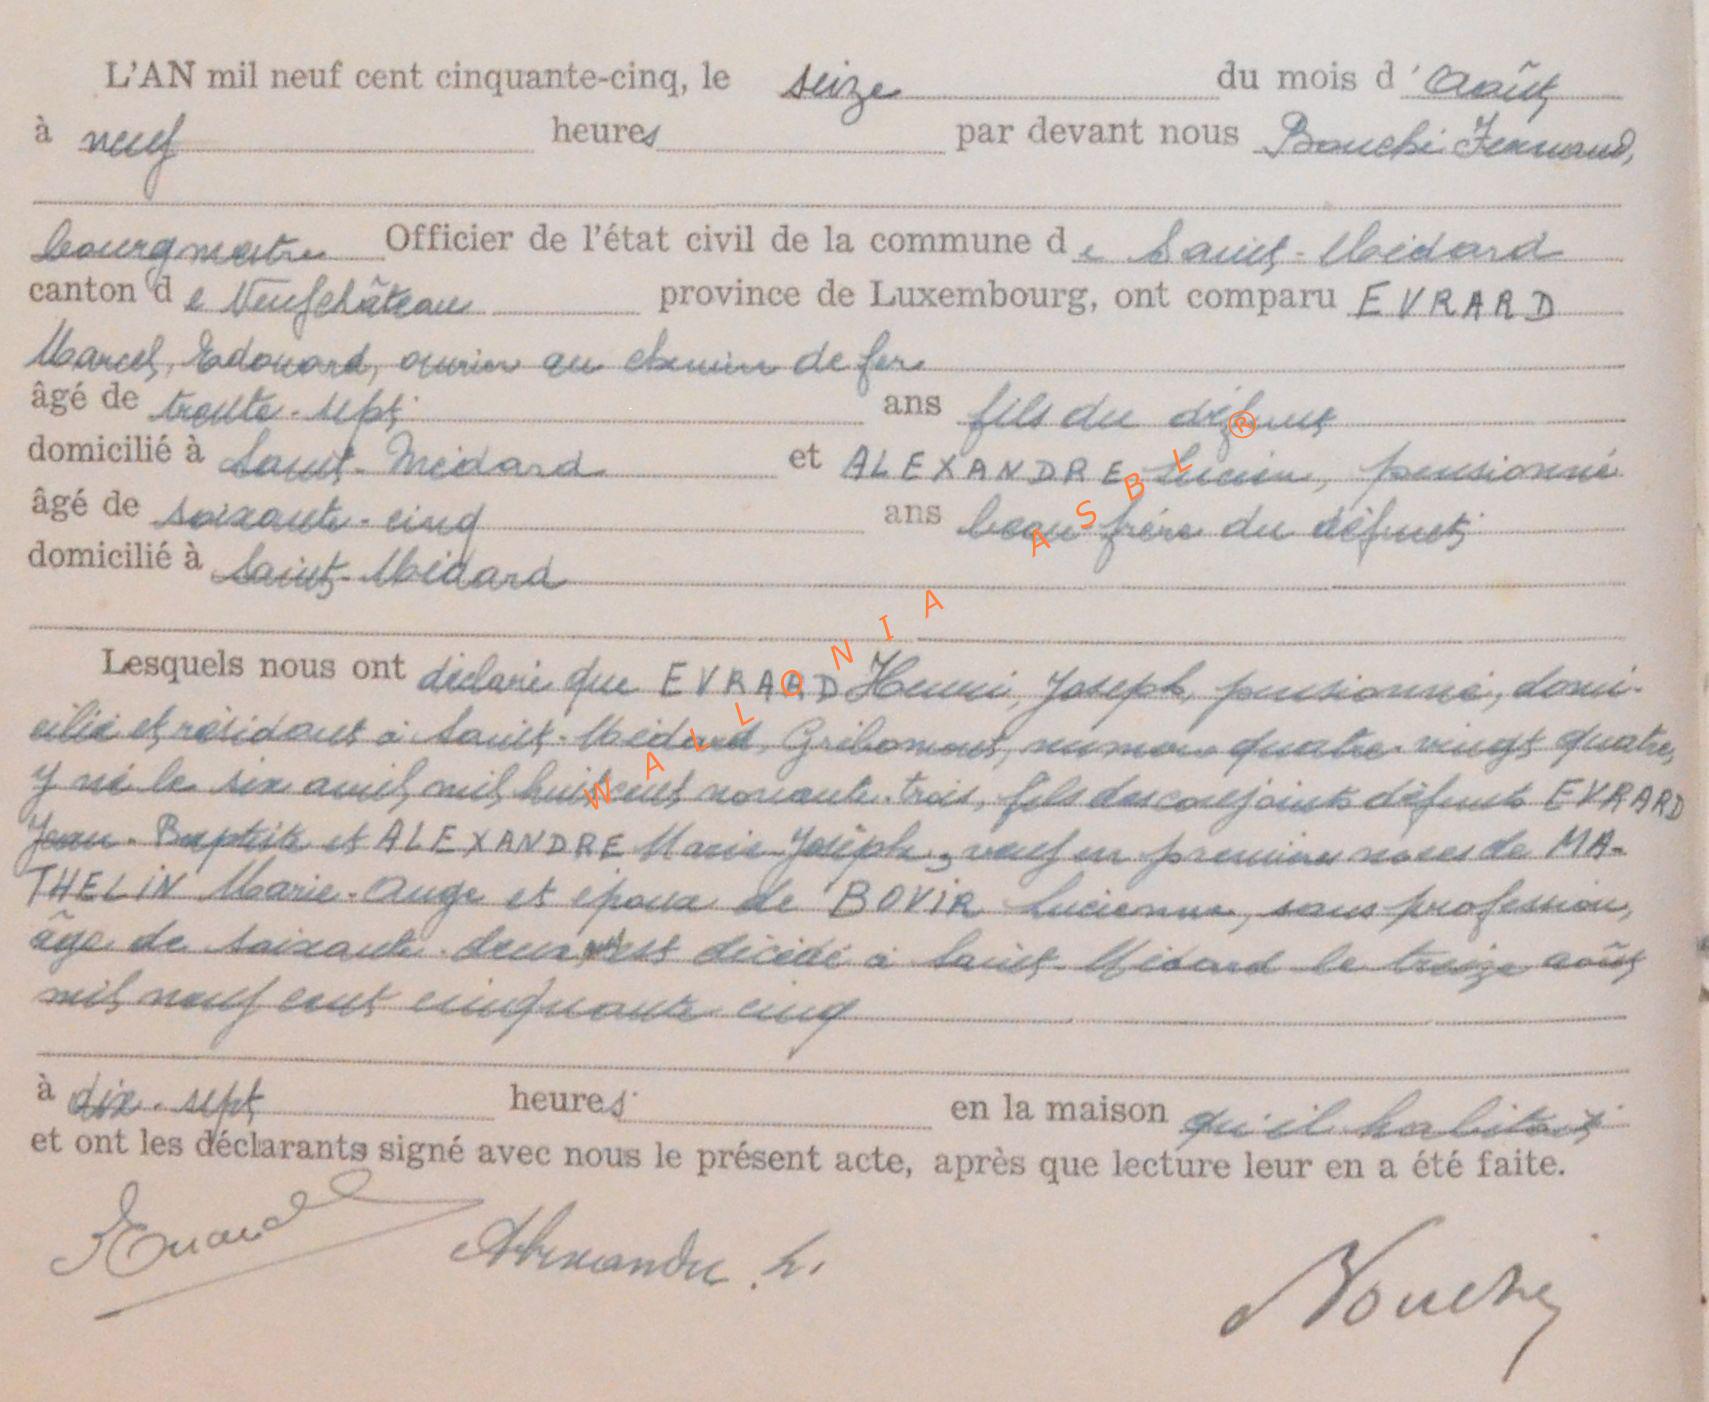 L'AN mil neuf cent cinquante-cinq, le seize du mois d'Août
à neuf heures par devant nous Bouché Fernand,
bourgmestre Officier de l'état civil de la commune de Saint-Médard
canton de Neufchâteau province de Luxembourg, ont comparu EVRARD
Marcel, Edouard, ouvrier au chemin de fer
âgé de trente-sept ans fils du défunt
domicilié à Saint-Médard et ALEXANDRE Lucien, pensionné
âgé de soixante-cinq ans beau-frère du défunt
domicilié à Saint-Médard
Lesquels nous ont déclaré que EVRARD Henri, Joseph, pensionné, domi-
cilié et résidant à Saint-Médard, Gribomont, numéro quatre-vingt quatre,
y né le six avril mil huit cent nonante-trois, fils des conjoints défunts EVRARD
Jean-Baptiste et ALEXANDRE Marie-Joseph, veuf en premières noces de MA-
THELIN Marie-Ange et époux de BOVIR Lucienne, sans profession,
âgé de soixante-deux est décédé à Saint-Médard le treize août
mil neuf cent cinquante cinq
à dix-sept heures en la maison qu'il habitait
et ont les déclarants signé avec nous le présent acte, après que lecture leur en a été faite.
Evrard Alexandre L. Bouché
WALLONIA ASBL ®